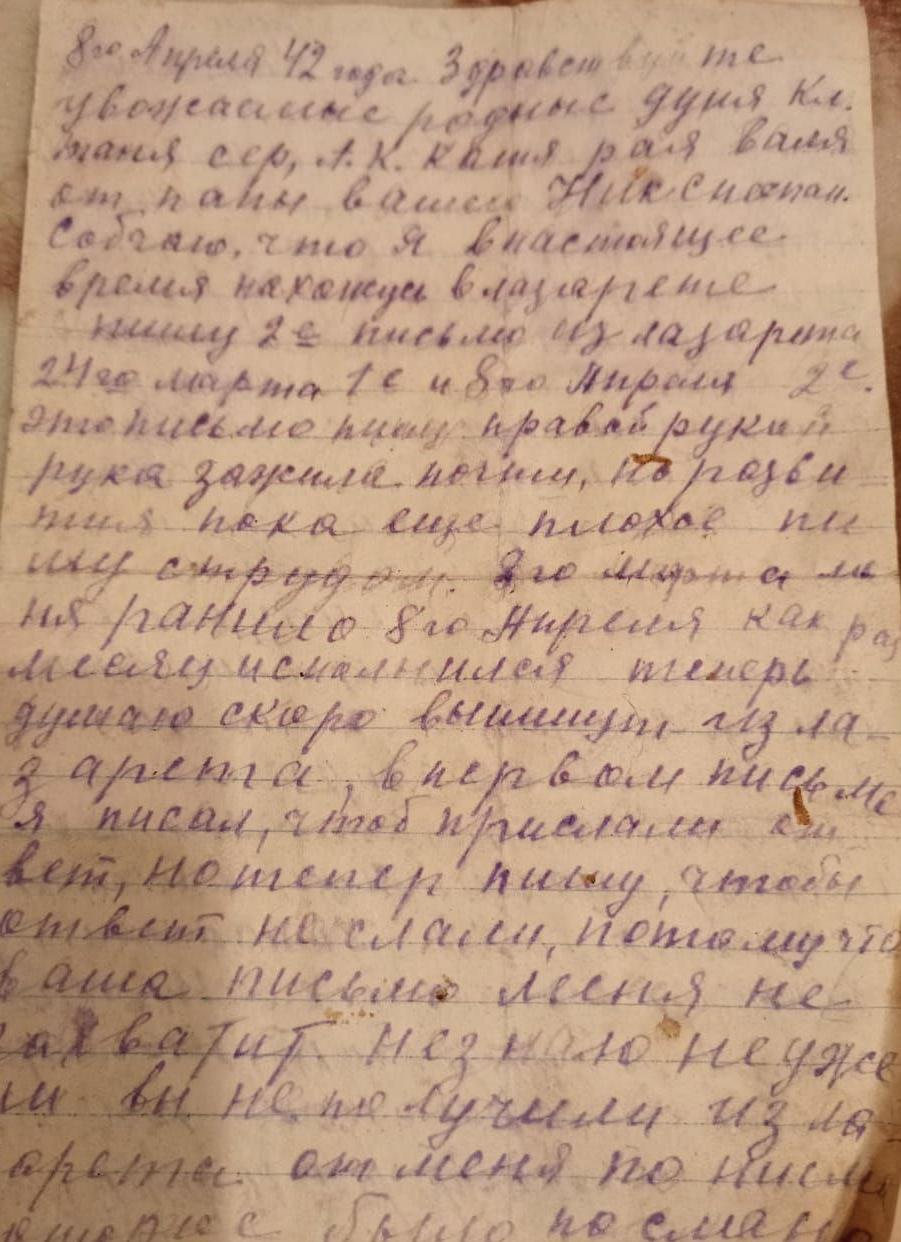 8го Апреля 42 года Здравствуйте
увожаемые родные дуня Кл.
таня сер, А.К. катя рая валя
от папы вашего Ник Степан.
Собчаю, что я внастоящее
время нахожусь влазарете
пишу 2е письмо из лазарета
24го марта 1е и 8го Апреля 2е.
это письмо пишу правой рукой
рука зажила почти, но разви
тия пока еще плохое пи
шу струдом. 8го марта ме
ня ранило 8го Апреля как раз
месяц исполнился теперь
думаю скоро выпишут из ла-
зарета, впервом письме
я писал, чтоб прислали от
вет, но тепер пишу, чтобы
ответ не слали, потому что
ваша письмо меня не
захватит незнаю неуже
ли вы не получили из ла-
зарета от меня по письму
которое было послано